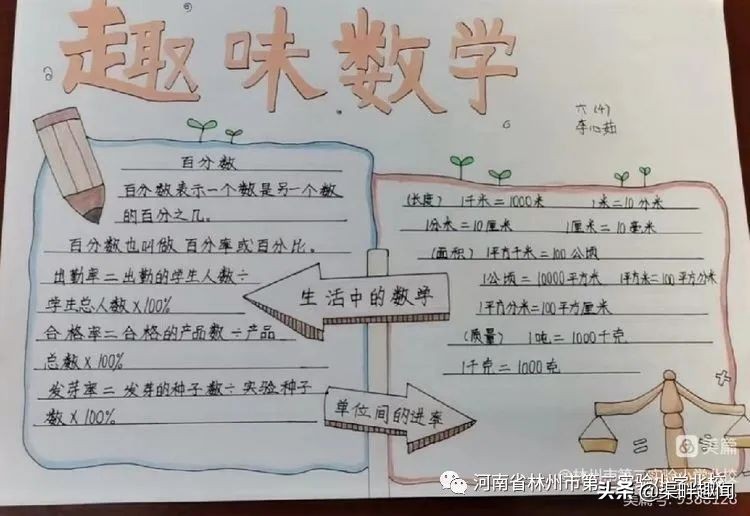 趣味数学
六(4)
李心茹
百分数
百分数表示一个数是另一个数
的百分之几。
百分数也叫做 百分率或百分比。
出勤率=出勤的学生人数÷
学生总人数×100%
合格率=合格的产品数÷产品
总数×100%
发芽率=发芽的种子数÷实验种子
数×100%
生活中的数学
单位间的进率
(长度) 1千米=1000米 1米=10分米
1分米=10厘米 1厘米=10毫米
(面积) 1平方千米=100公顷
1公顷=10000平方米 1平方米=100平方分米
1平方分米=100平方厘米
(质量) 1吨=1000千克
1千克=1000克
美篇
@林州市第二实验小学北校
河南省林州市第二实验小学北校
头条@渠畔趣闻
美篇号: 9388128